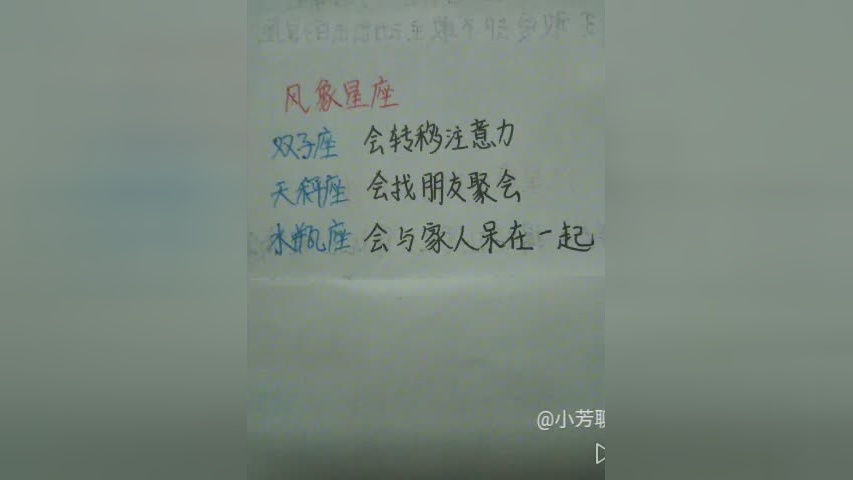 风象星座
双子座 会转移注意力
天秤座 会找朋友聚会
水瓶座 会与家人呆在一起
@小芳聊